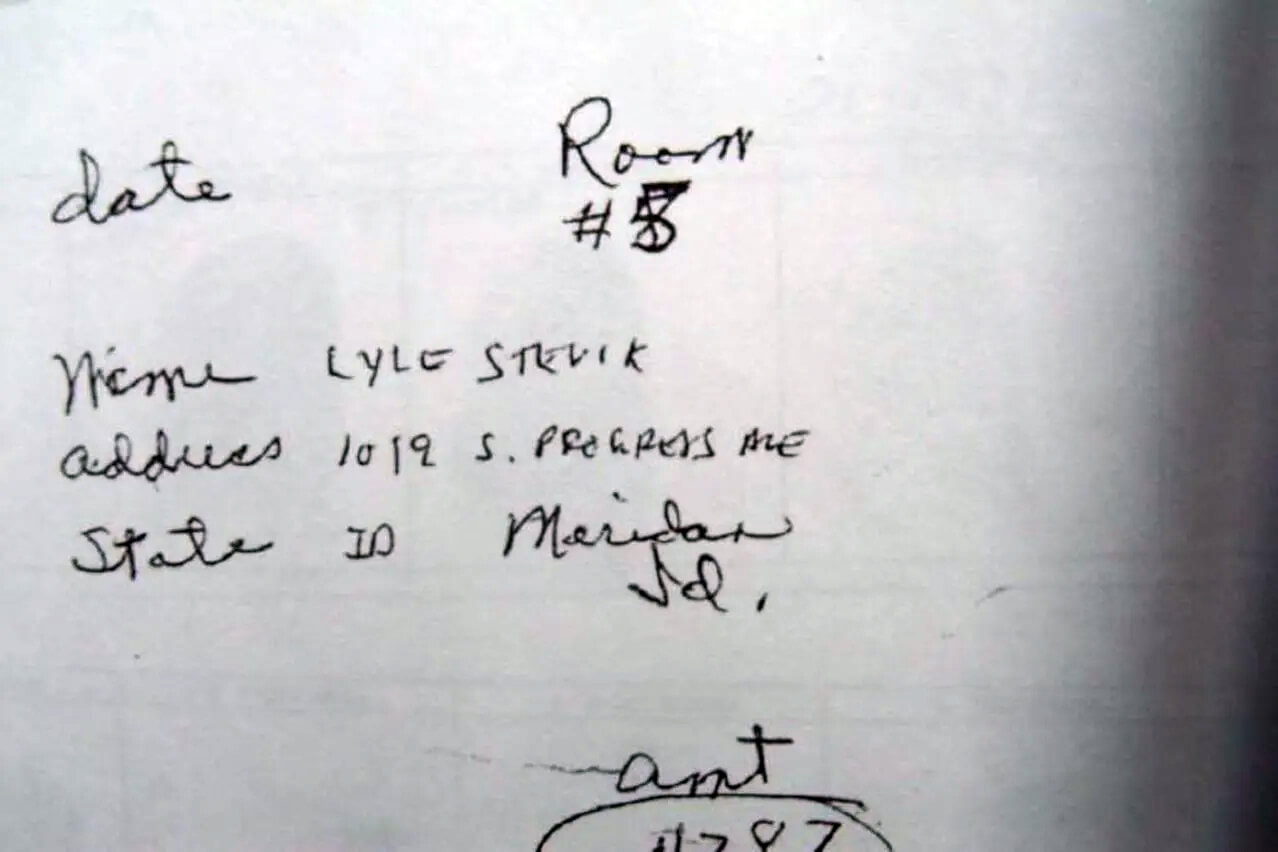 date Room
#
Name LYLE STEVIK
address 1019 S. PROGRESS AVE
State ID Meridan
Id.
amt